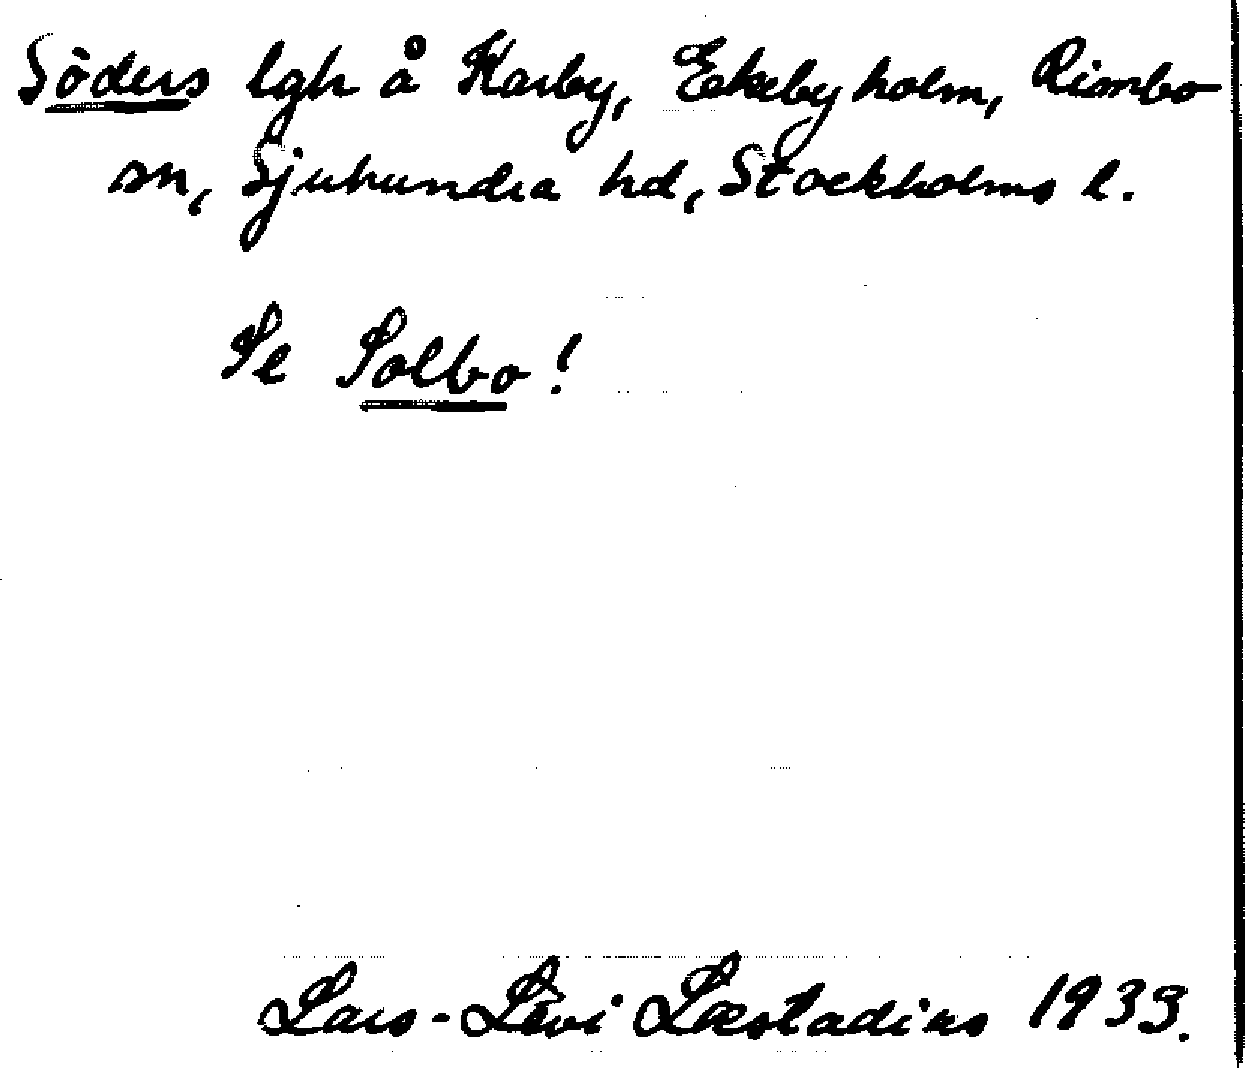 Söders lgh å Karby, Ekebyholm, Rimbo
sn, Sjuhundra hd, Stockholms l.
Se Solbo!
Lars-Levi Læstadius 1933.